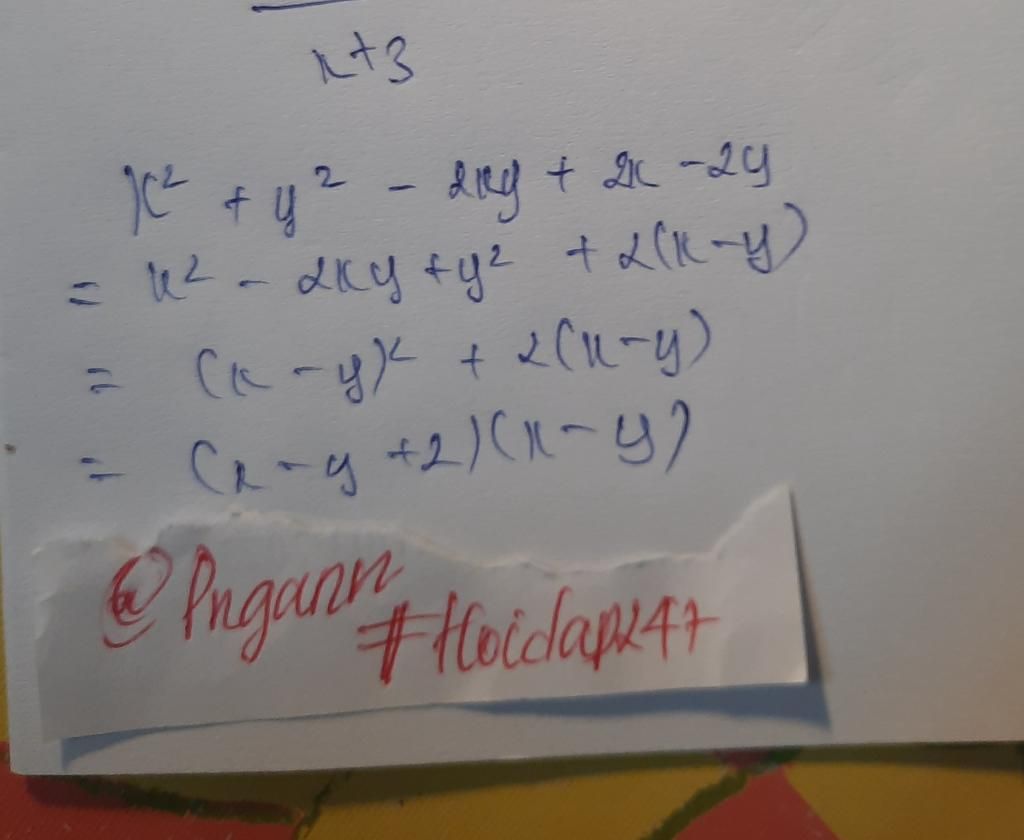 x+3
x² + y² - 2xy + 2x - 2y
= x² - 2xy + y² + 2(x-y)
= (x-y)² + 2(x-y)
= (x-y+2)(x-y)
@Pngann
#Hoidap247